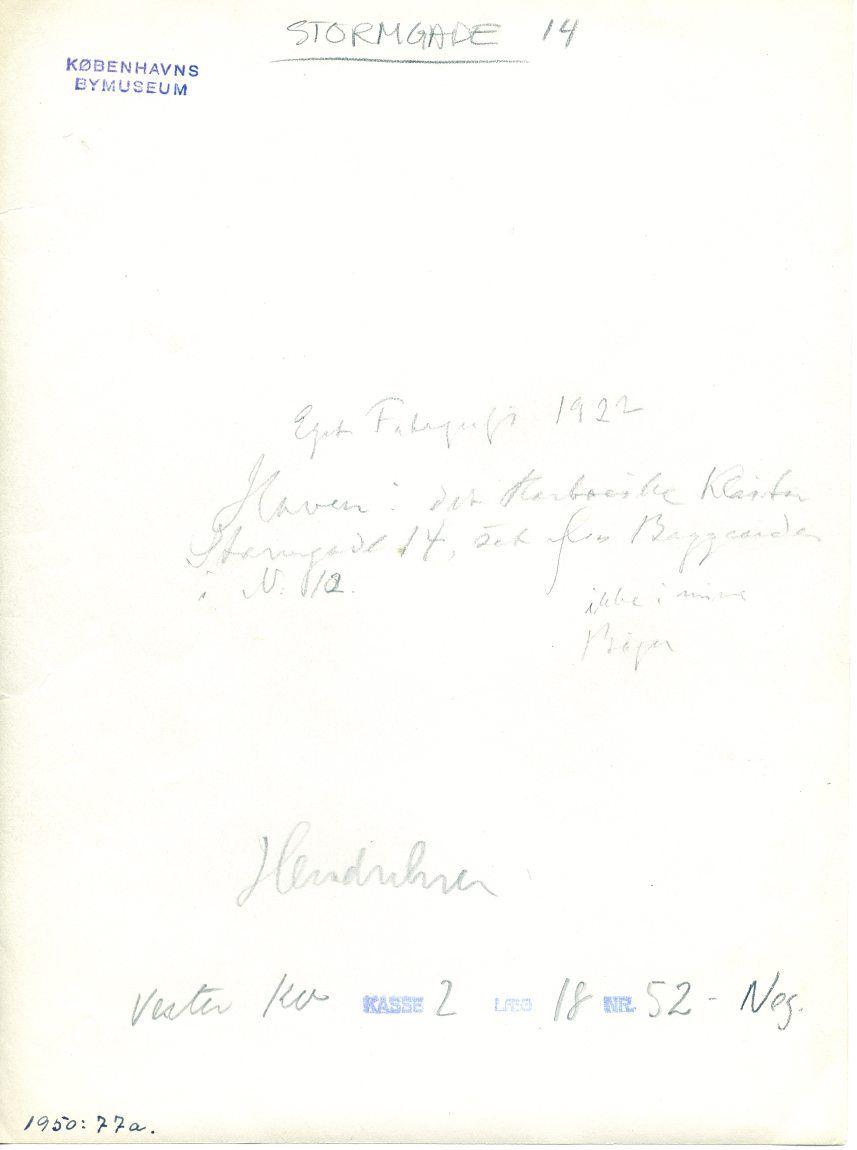 STORMGADE 14
KØBENHAVNS
BYMUSEUM
Eget Fotografi 1922
Haven i det Harboeske Kloster
Stormgade 14, set fra Baggaarden
i N. 12.
ikke i mine
Bøger
Hendriksen
Vester Kv KASSE 2 LÆG 18 NR. 52 - Neg.
1950:77a.